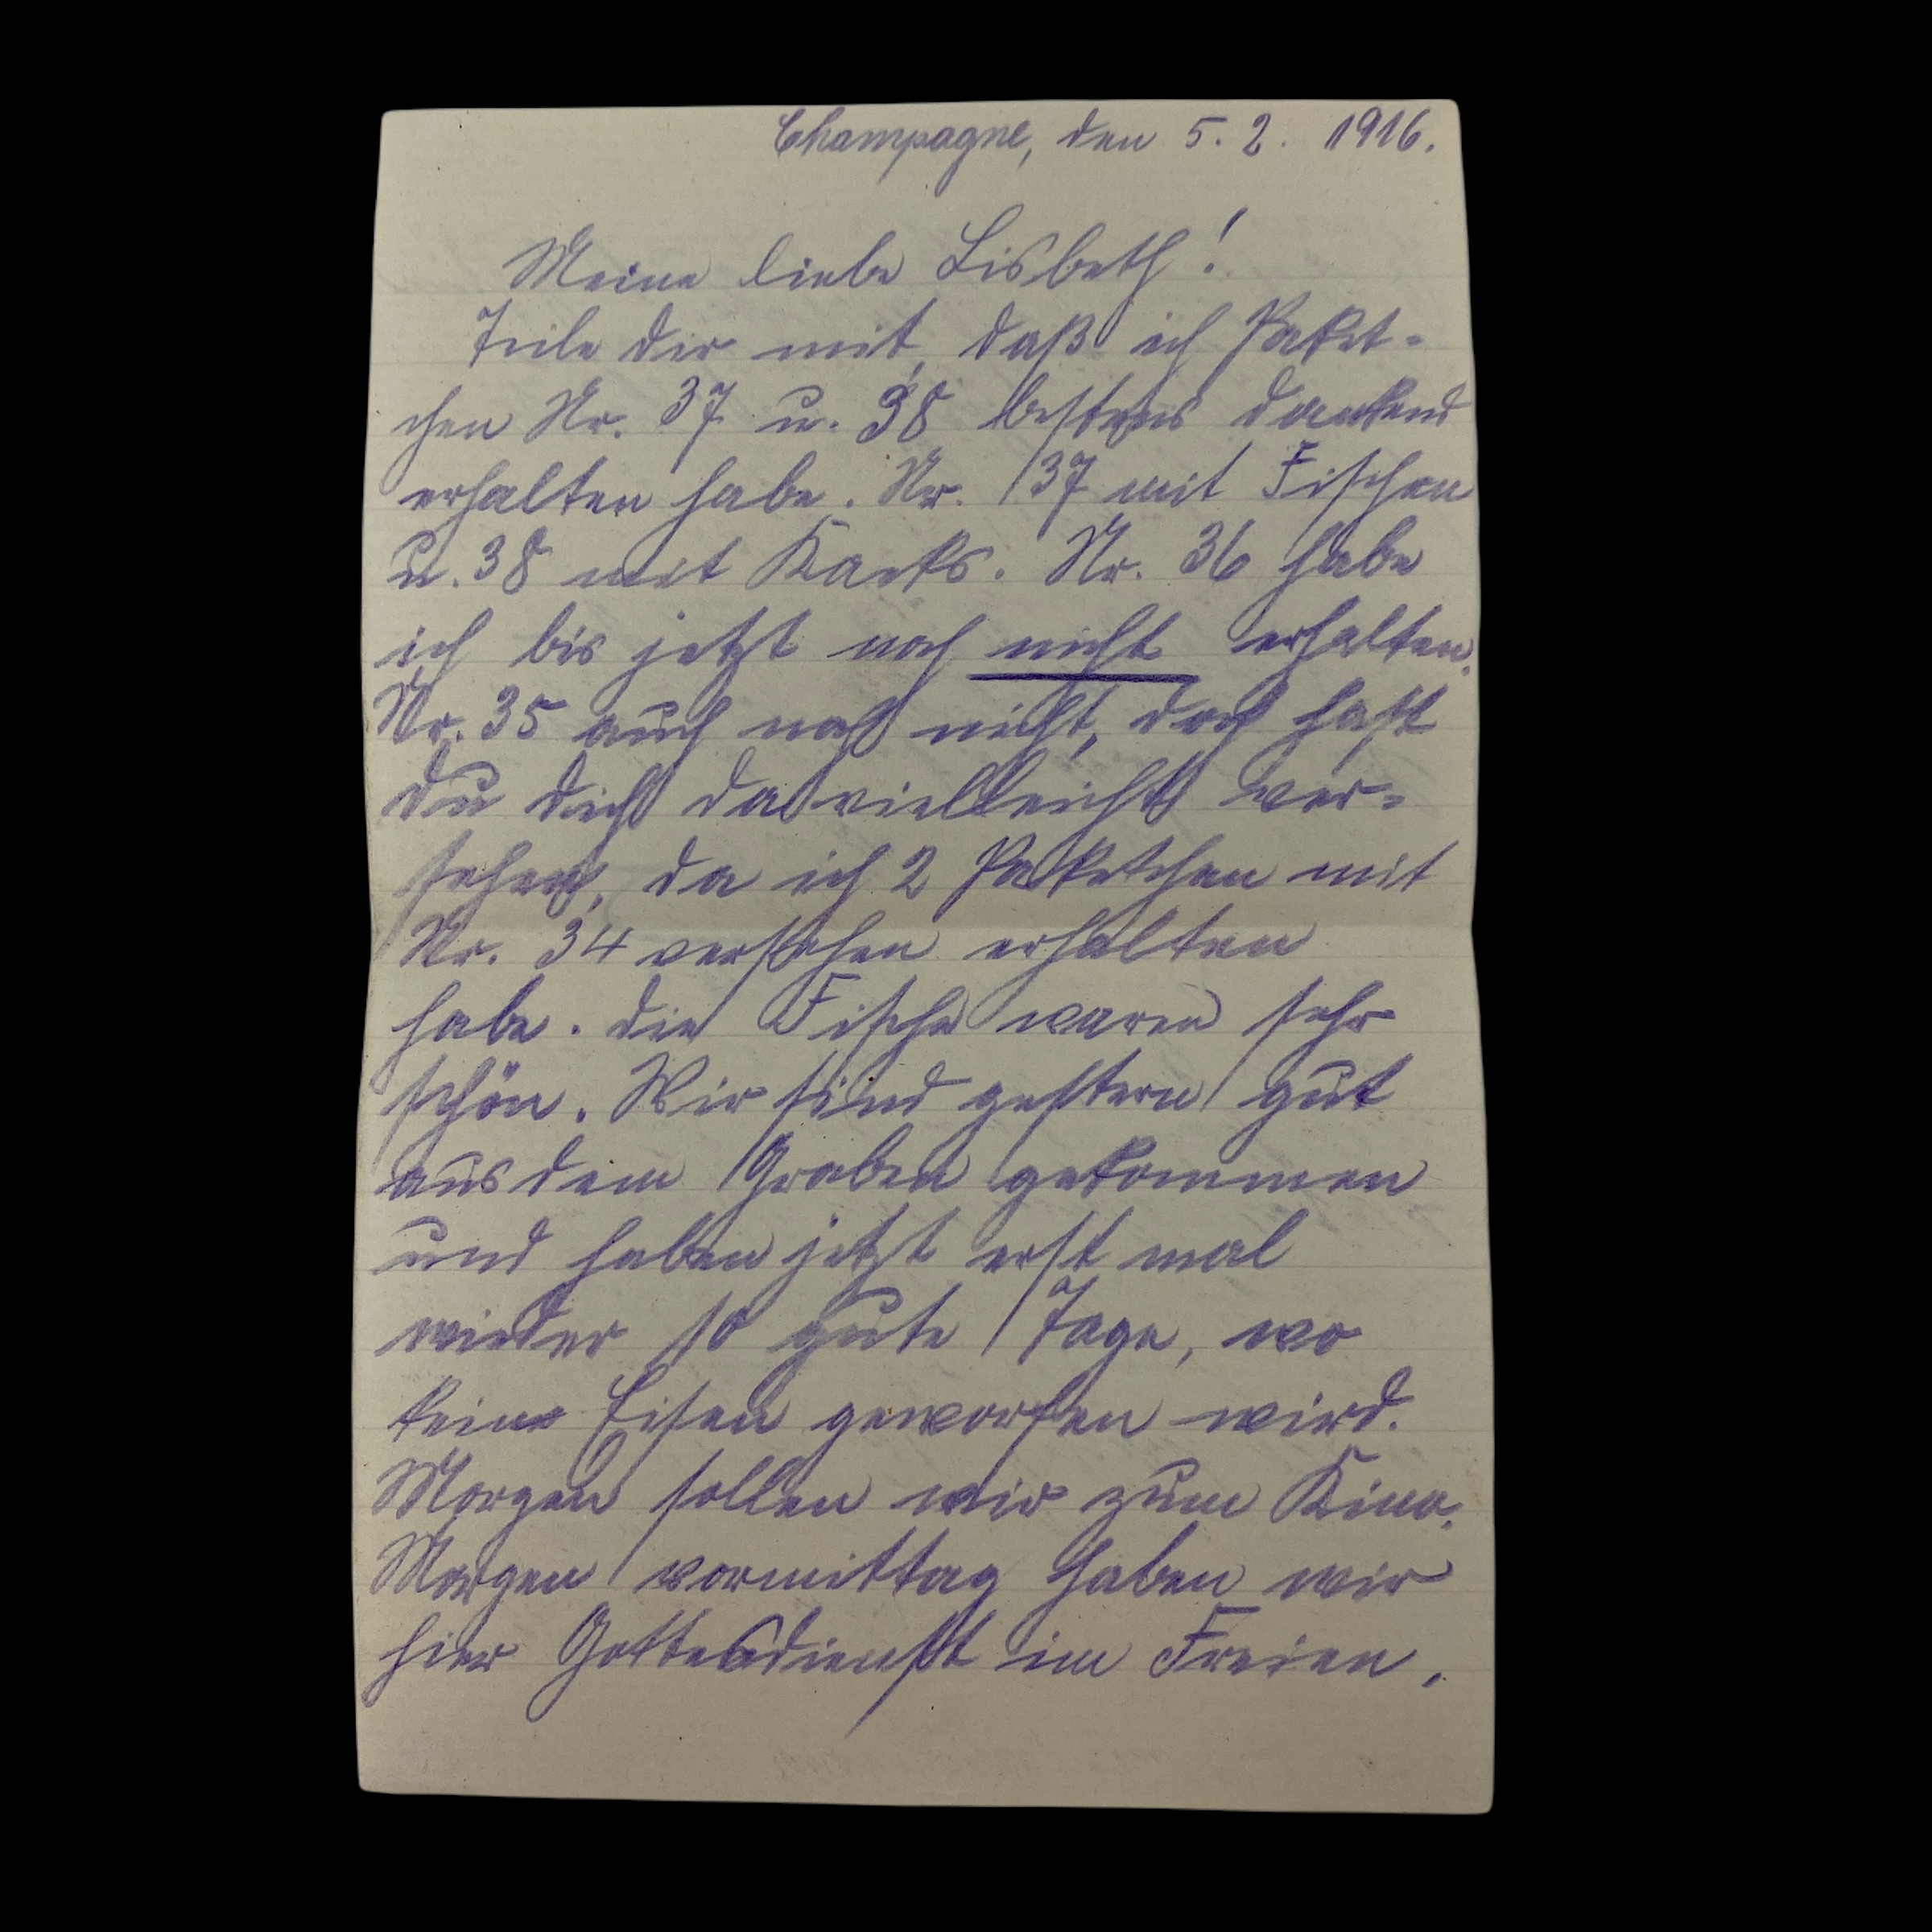 Champagne, den 5. 2. 1916.
Meine liebe Lisbeth!
Teile dir mit, daß ich Paket-
chen Nr. 37 u. 38 bestens dankend
erhalten habe. Nr. 37 mit Fischen
u. 38 mit Kaeks. Nr. 36 habe
ich bis jetzt noch nicht erhalten.
Nr. 35 auch noch nicht, doch hast
du dich da vielleicht ver-
sehen, da ich 2 Paketchen mit
Nr. 34 versehen erhalten
habe. Die Fische waren sehr
schön. Wir sind gestern gut
aus dem Graben gekommen
und haben jetzt erst mal
wieder so gute Tage, wo
kein Eisen geworfen wird.
Morgen sollen wir zum Kino.
Morgen vormittag haben wir
hier Gottesdienst im Freien.